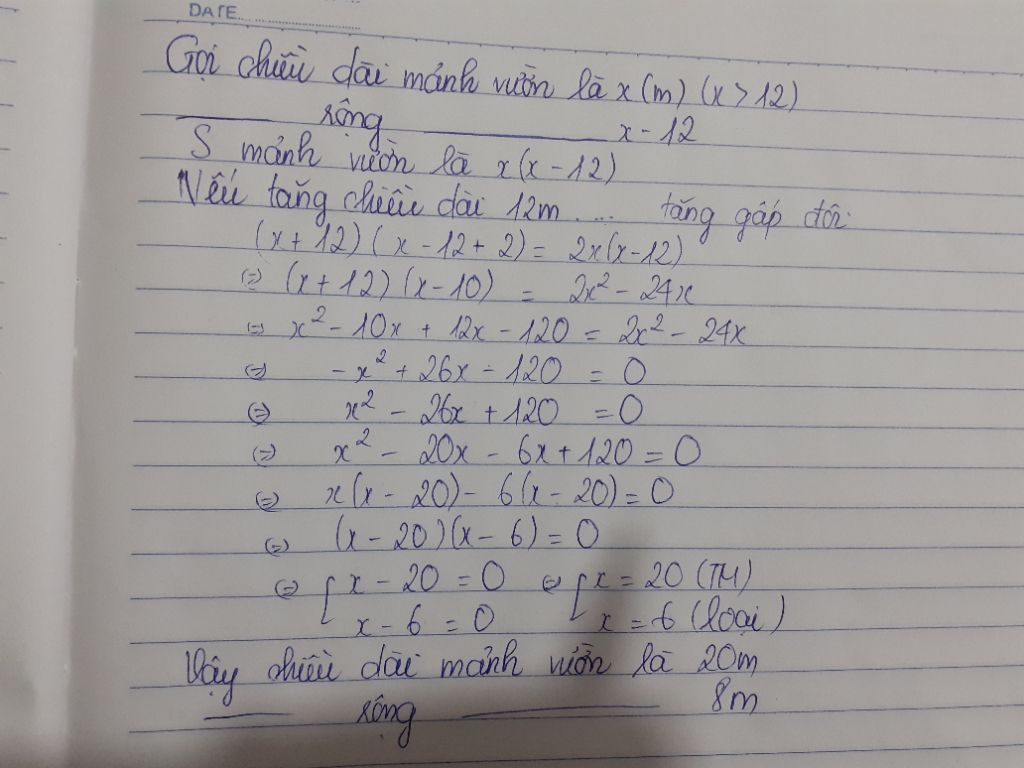 DATE
Gọi chiều dài mảnh vườn là x(m) (x > 12)
rộng x - 12
S mảnh vườn là x(x - 12)
Nếu tăng chiều dài 12m .... tăng gấp đôi:
(x + 12)(x - 12 + 2) = 2x(x - 12)
⇔ (x + 12)(x - 10) = 2x² - 24x
⇔ x² - 10x + 12x - 120 = 2x² - 24x
⇔ -x² + 26x - 120 = 0
⇔ x² - 26x + 120 = 0
⇔ x² - 20x - 6x + 120 = 0
⇔ x(x - 20) - 6(x - 20) = 0
⇔ (x - 20)(x - 6) = 0
⇔ [ x - 20 = 0 ⇔ [ x = 20 (TM)
x - 6 = 0 x = 6 (loại)
Vậy chiều dài mảnh vườn là 20m
rộng 8m